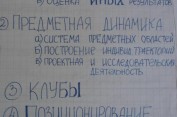 в) ОЦЕНКА ИНЫХ РЕЗУЛЬТАТОВ
② ПРЕДМЕТНАЯ ДИНАМИКА
а) СИСТЕМА ПРЕДМЕТНЫХ ОБЛАСТЕЙ
б) ПОСТРОЕНИЕ ИНДИВИД. ТРАЕКТОРИЙ
в) ПРОЕКТНАЯ И ИССЛЕДОВАТЕЛЬСКИХ
ДЕЯТЕЛЬНОСТЬ
③ КЛУБЫ
④ ПОЗИЦИОНИРОВАНИЕ